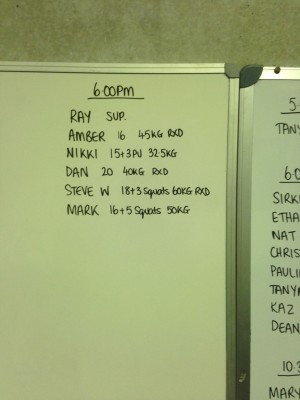 6:00PM
RAY SUP.
AMBER 16 45KG RXD
NIKKI 15+3 PJ 32.5KG
DAN 20 40KG RXD
STEVE W 18+3 Squats 60KG RXD
MARK 16+5 Squats 50KG
5
TANY
6:0
SIRK
ETHA
NAT
CHRIS
PAULI
TANYA
KAZ
DEAN
10:3
MARY